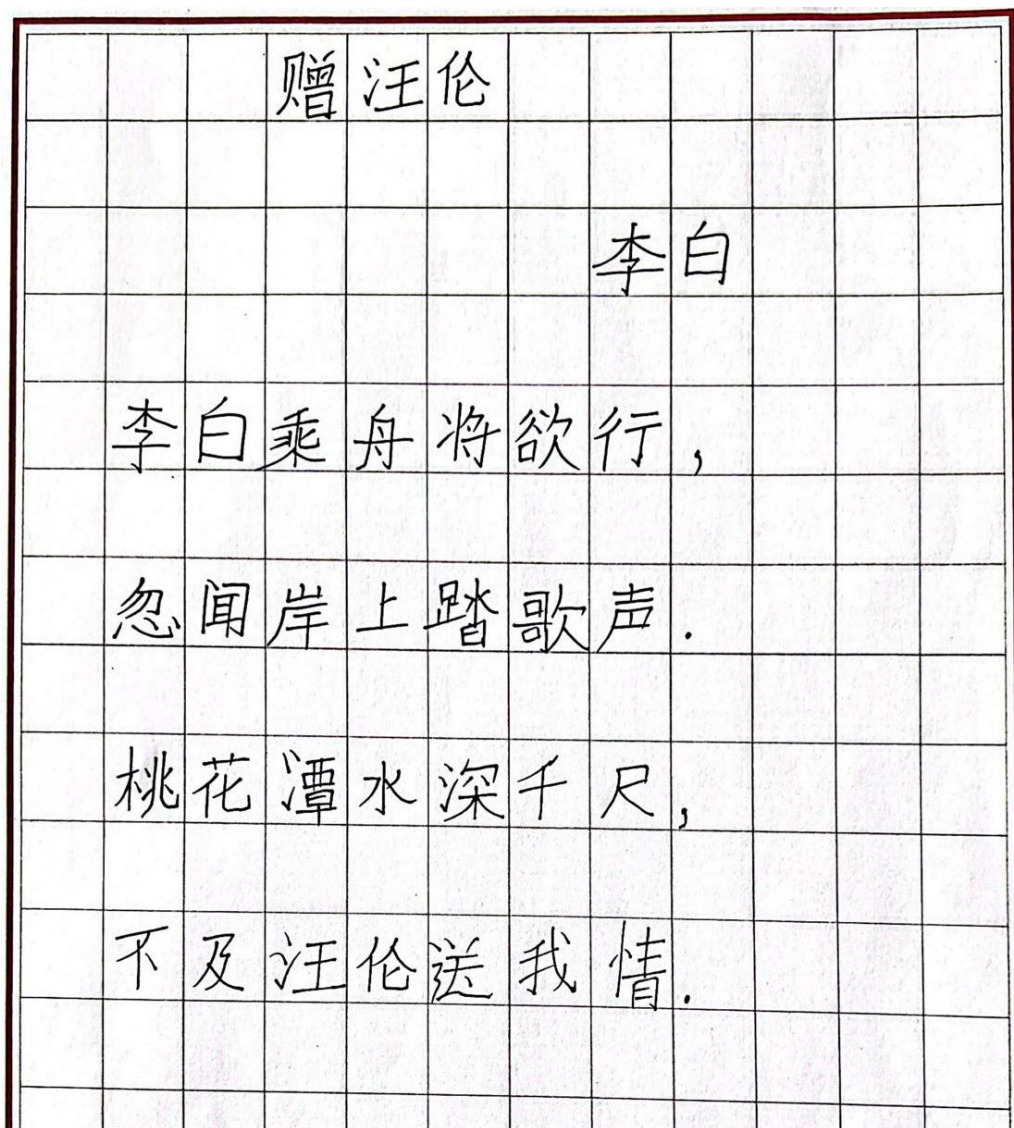 赠汪伦
李白
李白乘舟将欲行，
忽闻岸上踏歌声.
桃花潭水深千尺，
不及汪伦送我情.